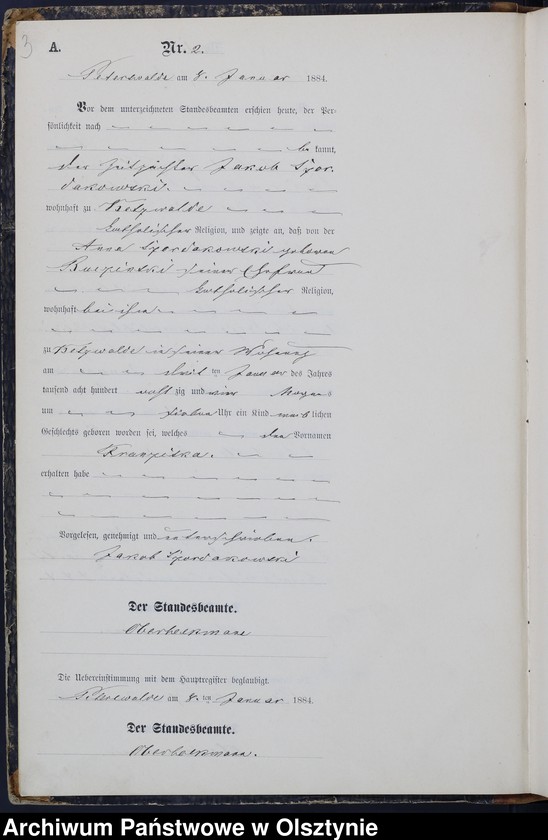 3
A. Nr. 2.
Peterswalde am 8. Januar 1884.
Vor dem unterzeichneten Standesbeamten erschien heute, der Per-
sönlichkeit nach
be kannt,
der Jakob
wohnhaft zu
katholischer Religion, und zeigte an, daß von der
Anna geboren
seiner Ehefrau
katholischer Religion,
wohnhaft bei ihm
zu in seiner Wohnung
am ten Januar des Jahres
tausend acht hundert acht zig und vier Morgens
um sieben Uhr ein Kind weib lichen
Geschlechts geboren worden sei, welches den Vornamen
Franziska.
erhalten habe
Vorgelesen, genehmigt und unterschrieben.
Jakob
Der Standesbeamte.
Die Uebereinstimmung mit dem Hauptregister beglaubigt.
Peterswalde am 8. ten Januar 1884.
Der Standesbeamte.
Archiwum Państwowe w Olsztynie